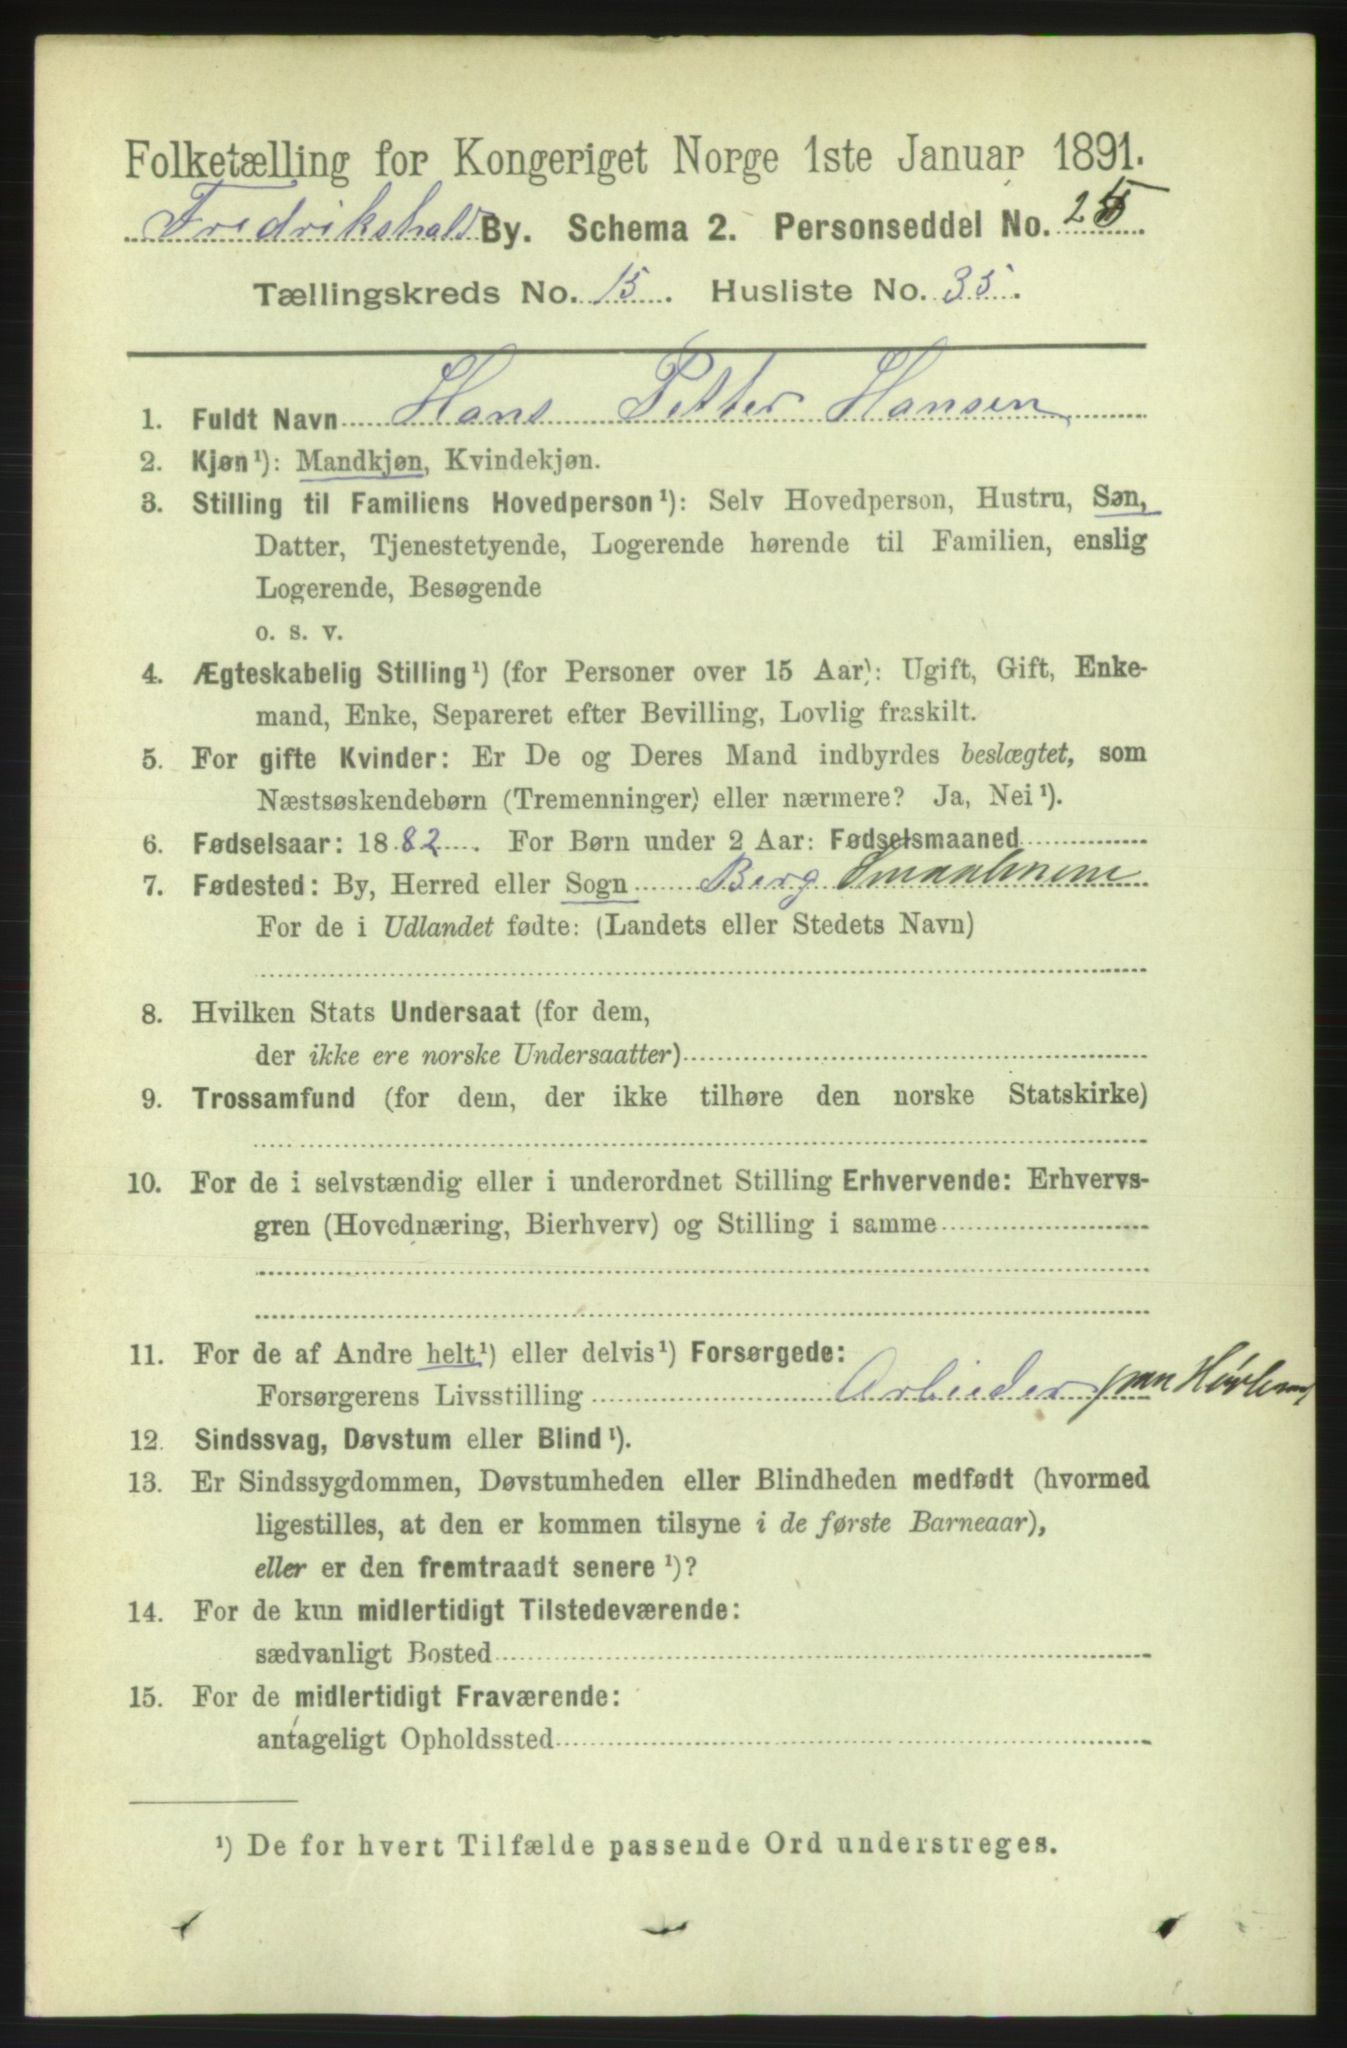 Folketælling for Kongeriget Norge 1ste Januar 1891.
Fredrikshald By. Schema 2. Personseddel No. 25.
Tællingskreds No. 15. Husliste No. 35.
1. Fuldt Navn Hans Petter Hansen
2. Kjøn¹): Mandkjøn, Kvindekjøn.
3. Stilling til Familiens Hovedperson¹): Selv Hovedperson, Hustru, Søn,
Datter, Tjenestetyende, Logerende hørende til Familien, enslig
Logerende, Besøgende
o. s. v.
4. Ægteskabelig Stilling¹) (for Personer over 15 Aar): Ugift, Gift, Enke-
mand, Enke, Separeret efter Bevilling, Lovlig fraskilt.
5. For gifte Kvinder: Er De og Deres Mand indbyrdes beslægtet, som
Næstsøskendebørn (Tremenninger) eller nærmere? Ja, Nei¹).
6. Fødselsaar: 1882. For Børn under 2 Aar: Fødselsmaaned
7. Fødested: By, Herred eller Sogn Berg Smaalenene
For de i Udlandet fødte: (Landets eller Stedets Navn)
8. Hvilken Stats Undersaat (for dem,
der ikke ere norske Undersaatter)
9. Trossamfund (for dem, der ikke tilhøre den norske Statskirke)
10. For de i selvstændig eller i underordnet Stilling Erhvervende: Erhvervs-
gren (Hovednæring, Bierhverv) og Stilling i samme
11. For de af Andre helt¹) eller delvis¹) Forsørgede:
Forsørgerens Livsstilling Arbieder paa
12. Sindssvag, Døvstum eller Blind¹).
13. Er Sindssygdommen, Døvstumheden eller Blindheden medfødt (hvormed
ligestilles, at den er kommen tilsyne i de første Barneaar),
eller er den fremtraadt senere¹)?
14. For de kun midlertidigt Tilstedeværende:
sædvanligt Bosted
15. For de midlertidigt Fraværende:
antageligt Opholdssted
¹) De for hvert Tilfælde passende Ord understreges.